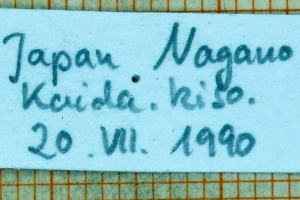 Japan. Nagano
Kaida. kiso.
20. VII. 1990